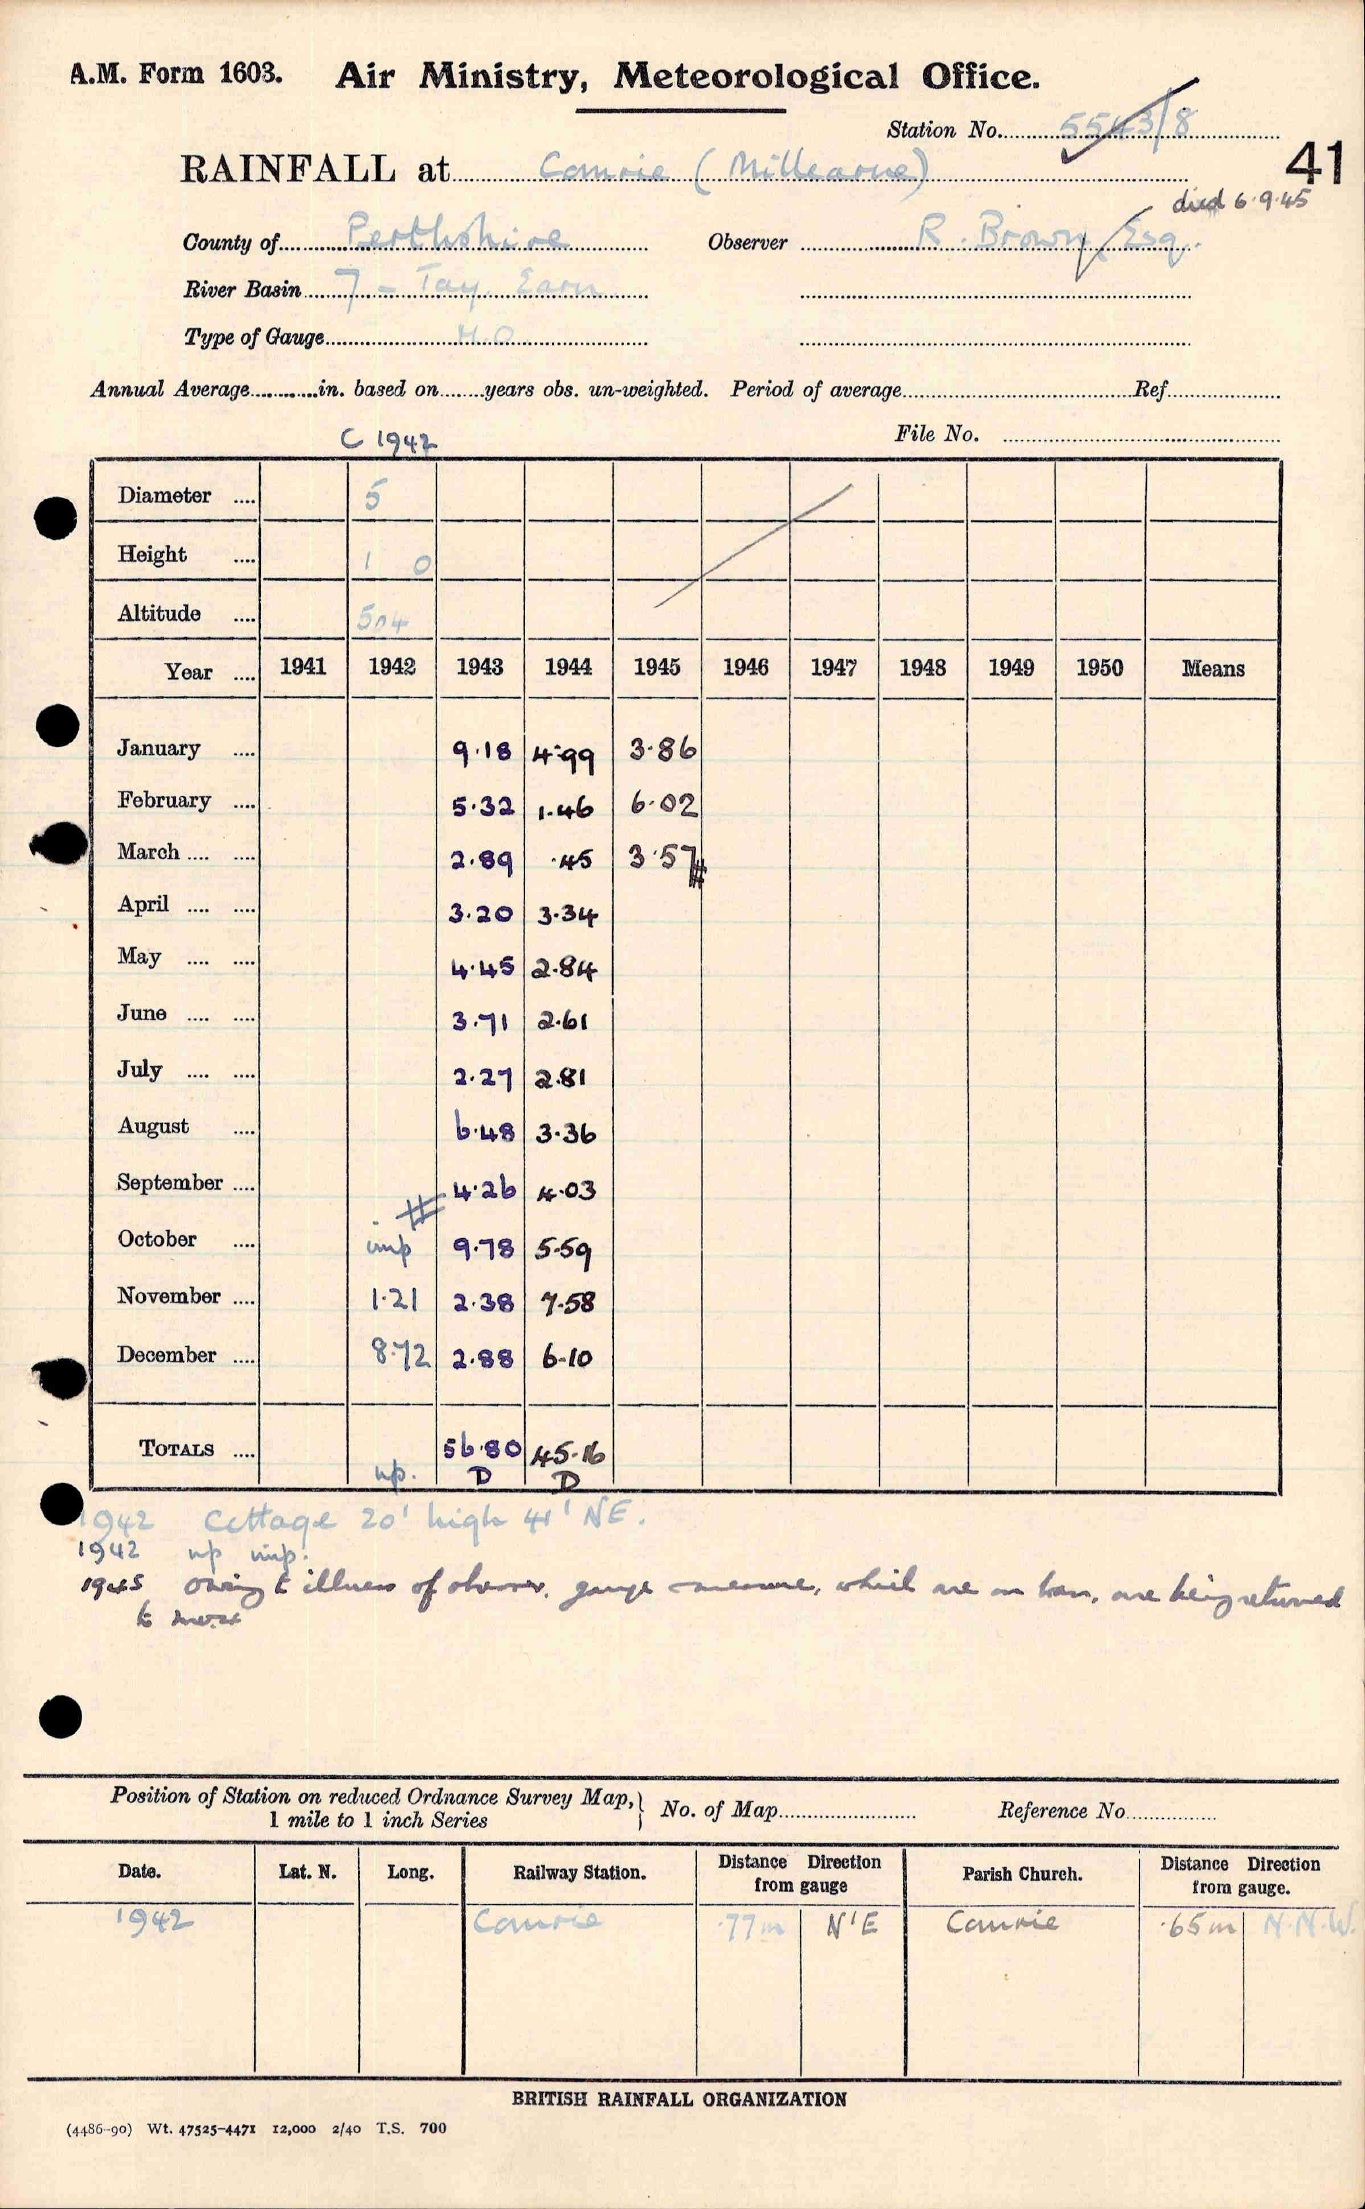 A.M. Form 1603. Air Ministry, Meteorological Office.
Station No. 5543/8
41
RAINFALL at Comrie (Millearne)
died 6.9.45
County of Perthshire Observer R. Brown, Esq.
River Basin 7 - Tay. Earn
Type of Gauge M.O.
Annual Average in. based on years obs. un-weighted. Period of average Ref.
C 1942
File No.
Diameter .... 5
Height .... 1 0
Altitude .... 504
Year .... 1941 1942 1943 1944 1945 1946 1947 1948 1949 1950 Means
January .... 9.18 4.99 3.86
February .... 5.32 1.46 6.02
March .... .... 2.89 .45 3.57 #
April .... .... 3.20 3.34
May .... .... 4.45 2.84
June .... .... 3.71 2.61
July .... .... 2.27 2.81
August .... 6.48 3.36
September .... # 4.26 4.03
October .... imp 9.78 5.59
November .... 1.21 2.38 7.58
December .... 8.72 2.88 6.10
TOTALS .... np. 56.80 45.16
D D
1942 Cottage 20' high 41' NE.
1942 np imp.
1945 owing to illness of observer, gauge measure, which are on loan, are being returned
to
Position of Station on reduced Ordnance Survey Map, 1 mile to 1 inch Series } No. of Map Reference No.
Date. Lat. N. Long. Railway Station. Distance Direction from gauge Parish Church. Distance Direction from gauge.
1942 Comrie .77m N'E Comrie .65m N.N.W.
BRITISH RAINFALL ORGANIZATION
(4486-90) Wt. 47525-4471 12,000 2/40 T.S. 700